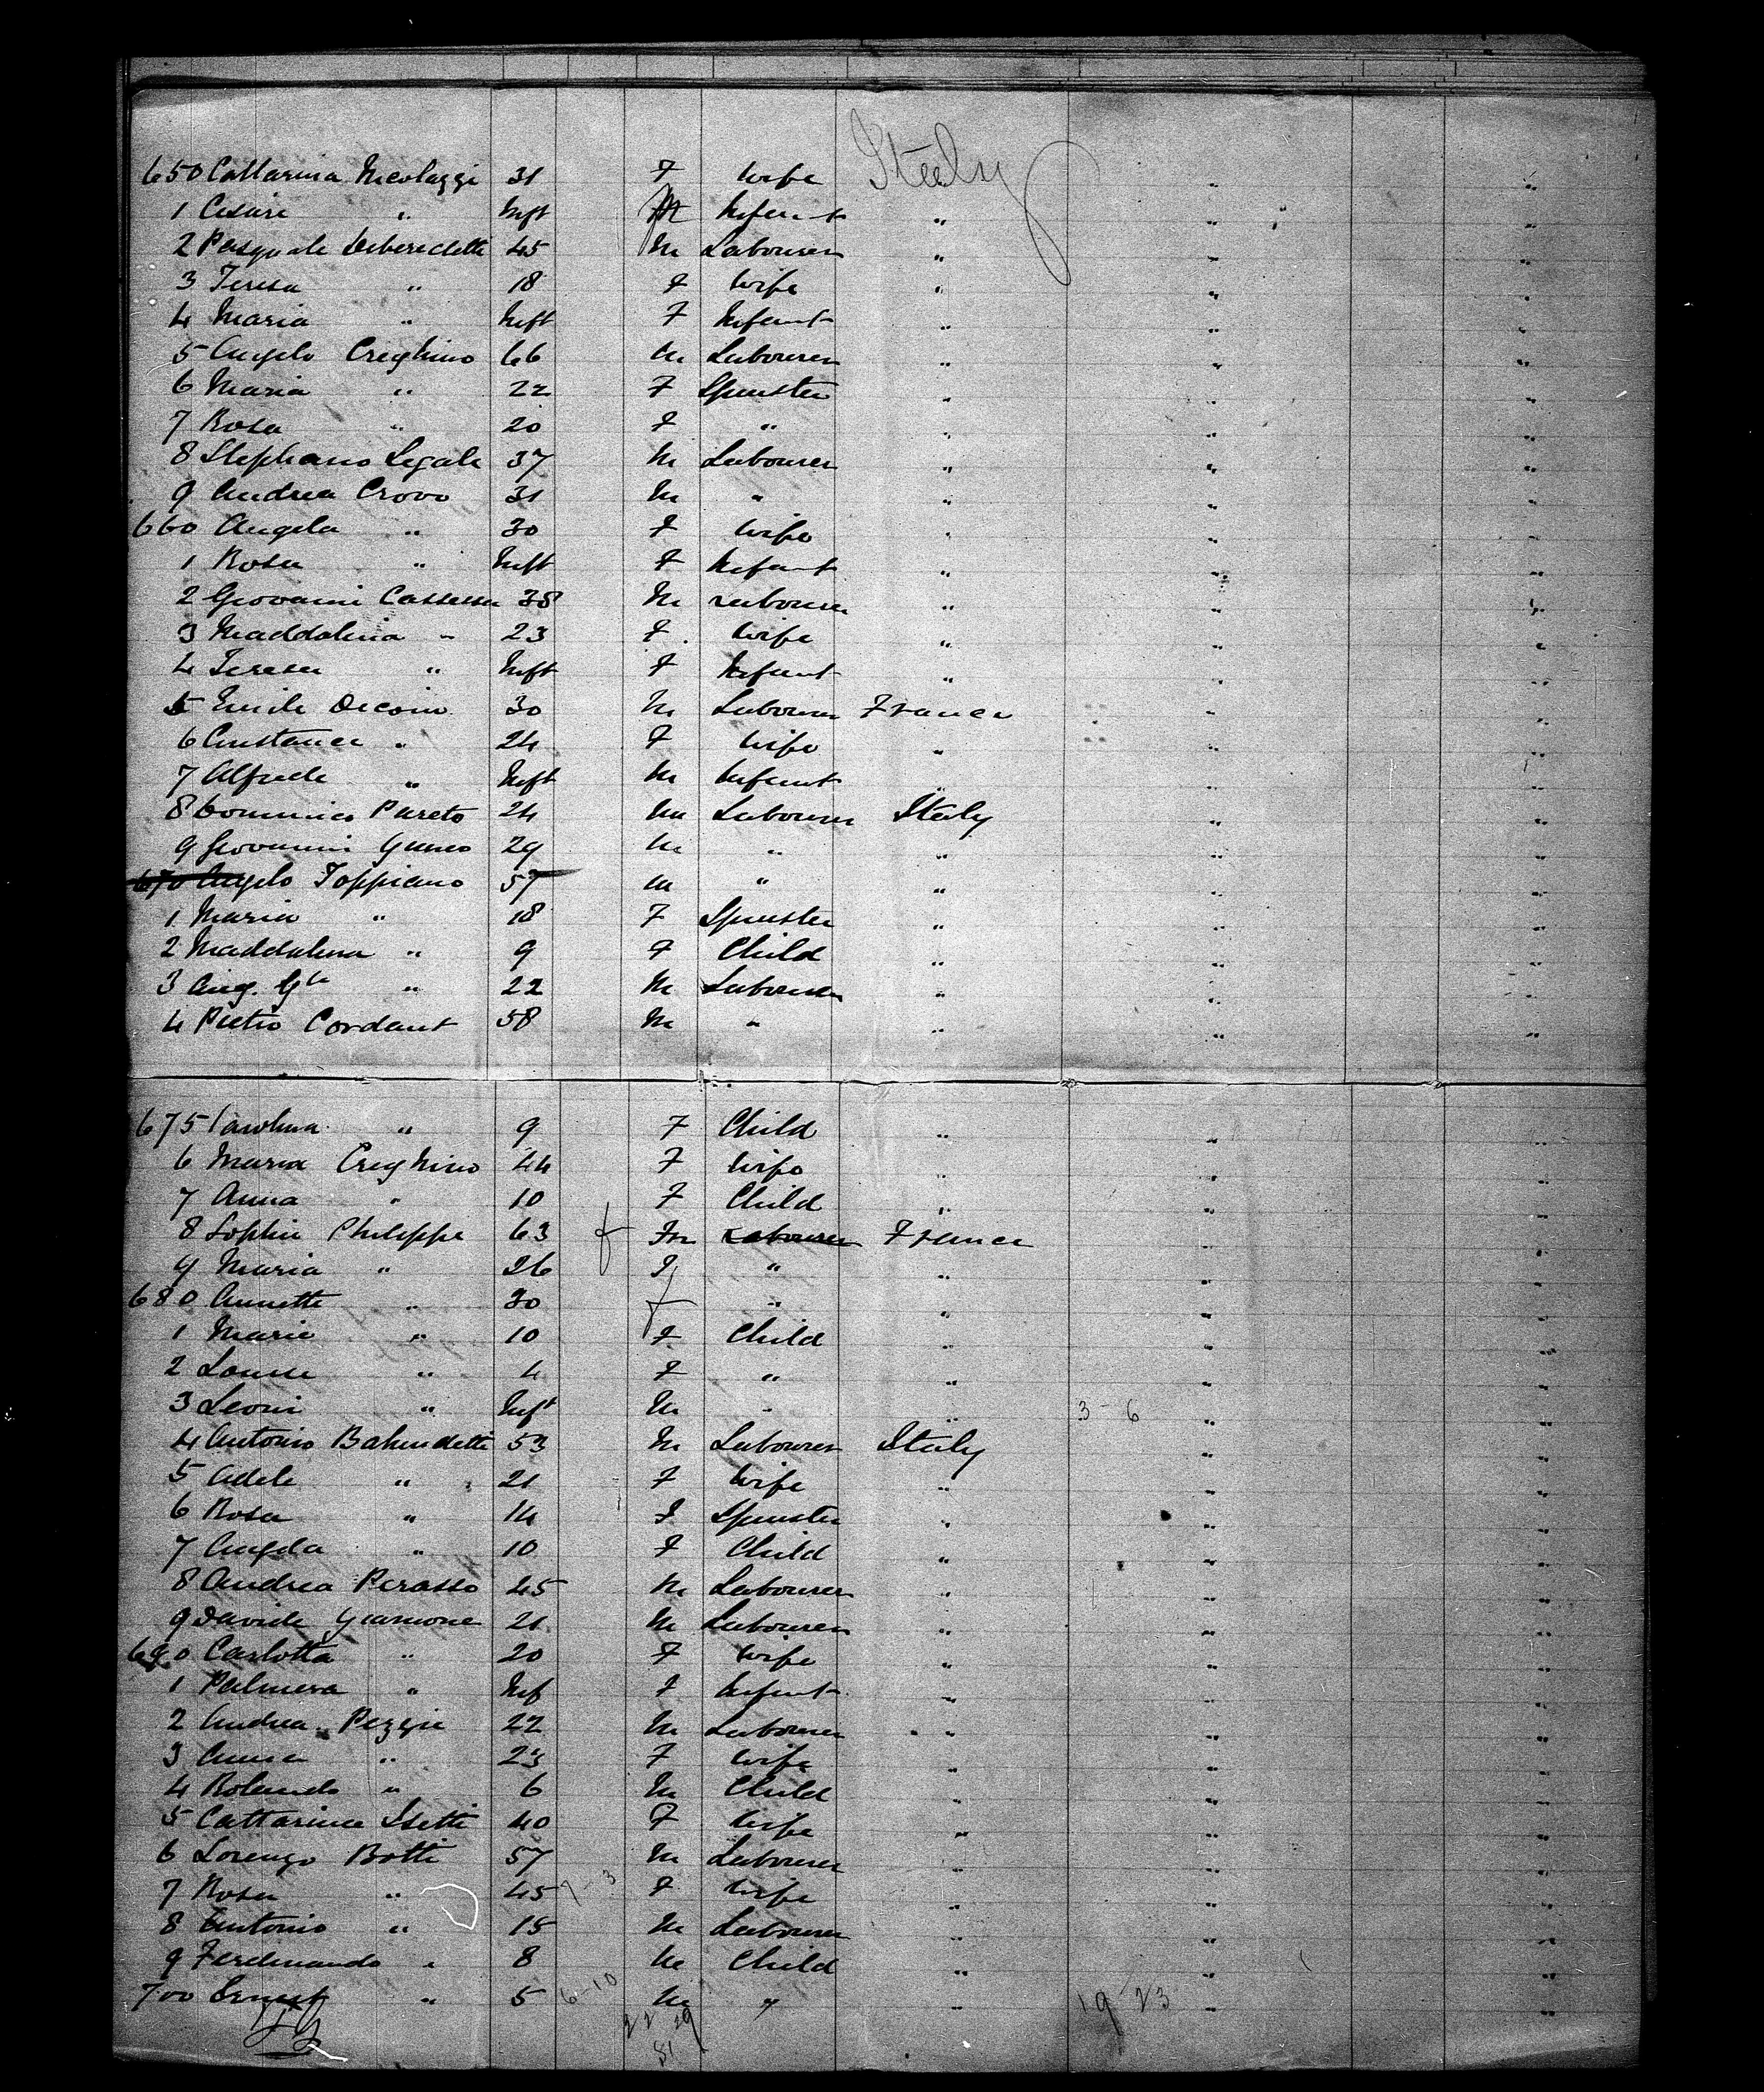 Italy
650 Cattarina Nicolazzi 31 F Wife " " "
1 Cesare " Inft M Infant " " "
2 Pasquale Debenedetti 45 M Labourer " " "
3 Teresa " 18 F Wife " " "
4 Maria " Inft F Infant " " "
5 Angelo Creghino 66 M Labourer " " "
6 Maria " 22 F Spinster " " "
7 Rosa " 20 F " " " "
8 Stephano Segale 37 M Labourer " " "
9 Andrea Crovo 31 M " " " "
660 Angela " 30 F Wife " " "
1 Rosa " Inft F Infant " " "
2 Giovanni Cassessa 38 M Labourer " " "
3 Maddalina " 23 F Wife " " "
4 Teresa " Inft F Infant " " "
5 Emile Decoin 30 M Labourer France " "
6 Constance " 24 F Wife " " "
7 Alfrede " Inft M Infant " " "
8 Dominico Pareto 24 M Labourer Italy " "
9 Giovanni 29 M " " " "
670 Angelo Toppiano 57 M " " " "
1 Maria " 18 F Spinster " " "
2 Maddalena " 9 F Child " " "
3 Aug. " 22 M Labourer " " "
4 Pietro Cordant 58 M " " " "
675 Carolina " 9 F Child " " "
6 Maria Creghino 44 F Wife " " "
7 Anna " 10 F Child " " "
8 Sophie Philippe 63 f Labourer France " "
9 Maria " 26 F " " " "
680 Annette " 30 f " " " "
1 Marie " 10 F Child " " "
2 Louise " 4 F " " " "
3 Leoni " Inft M " " 3 - 6 " "
4 Antonio 53 M Labourer Italy " "
5 Adele " 21 F Wife " " "
6 Rosa " 14 F Spinster " " "
7 Angela " 10 F Child " " "
8 Andrea Perasso 45 M Labourer " " "
9 Davide 21 M Labourer " " "
690 Carlotta " 20 F Wife " " "
1 Palmera " Inf F Infant " " "
2 Andrea Pezzie 22 M Labourer " " "
3 Anna " 23 F Wife " " "
4 Rolando " 6 M Child " " "
5 Cattarina Isetti 40 F Wife " " "
6 Lorenzo Botti 57 M Labourer " " "
7 Rosa " 45 7 - 3 F Wife " " "
8 Antonio " 15 M Labourer " " "
9 Ferdinando " 8 M Child " " "
700 Ernest " 5 6-10 M " " 19-23 " "
22 29
51